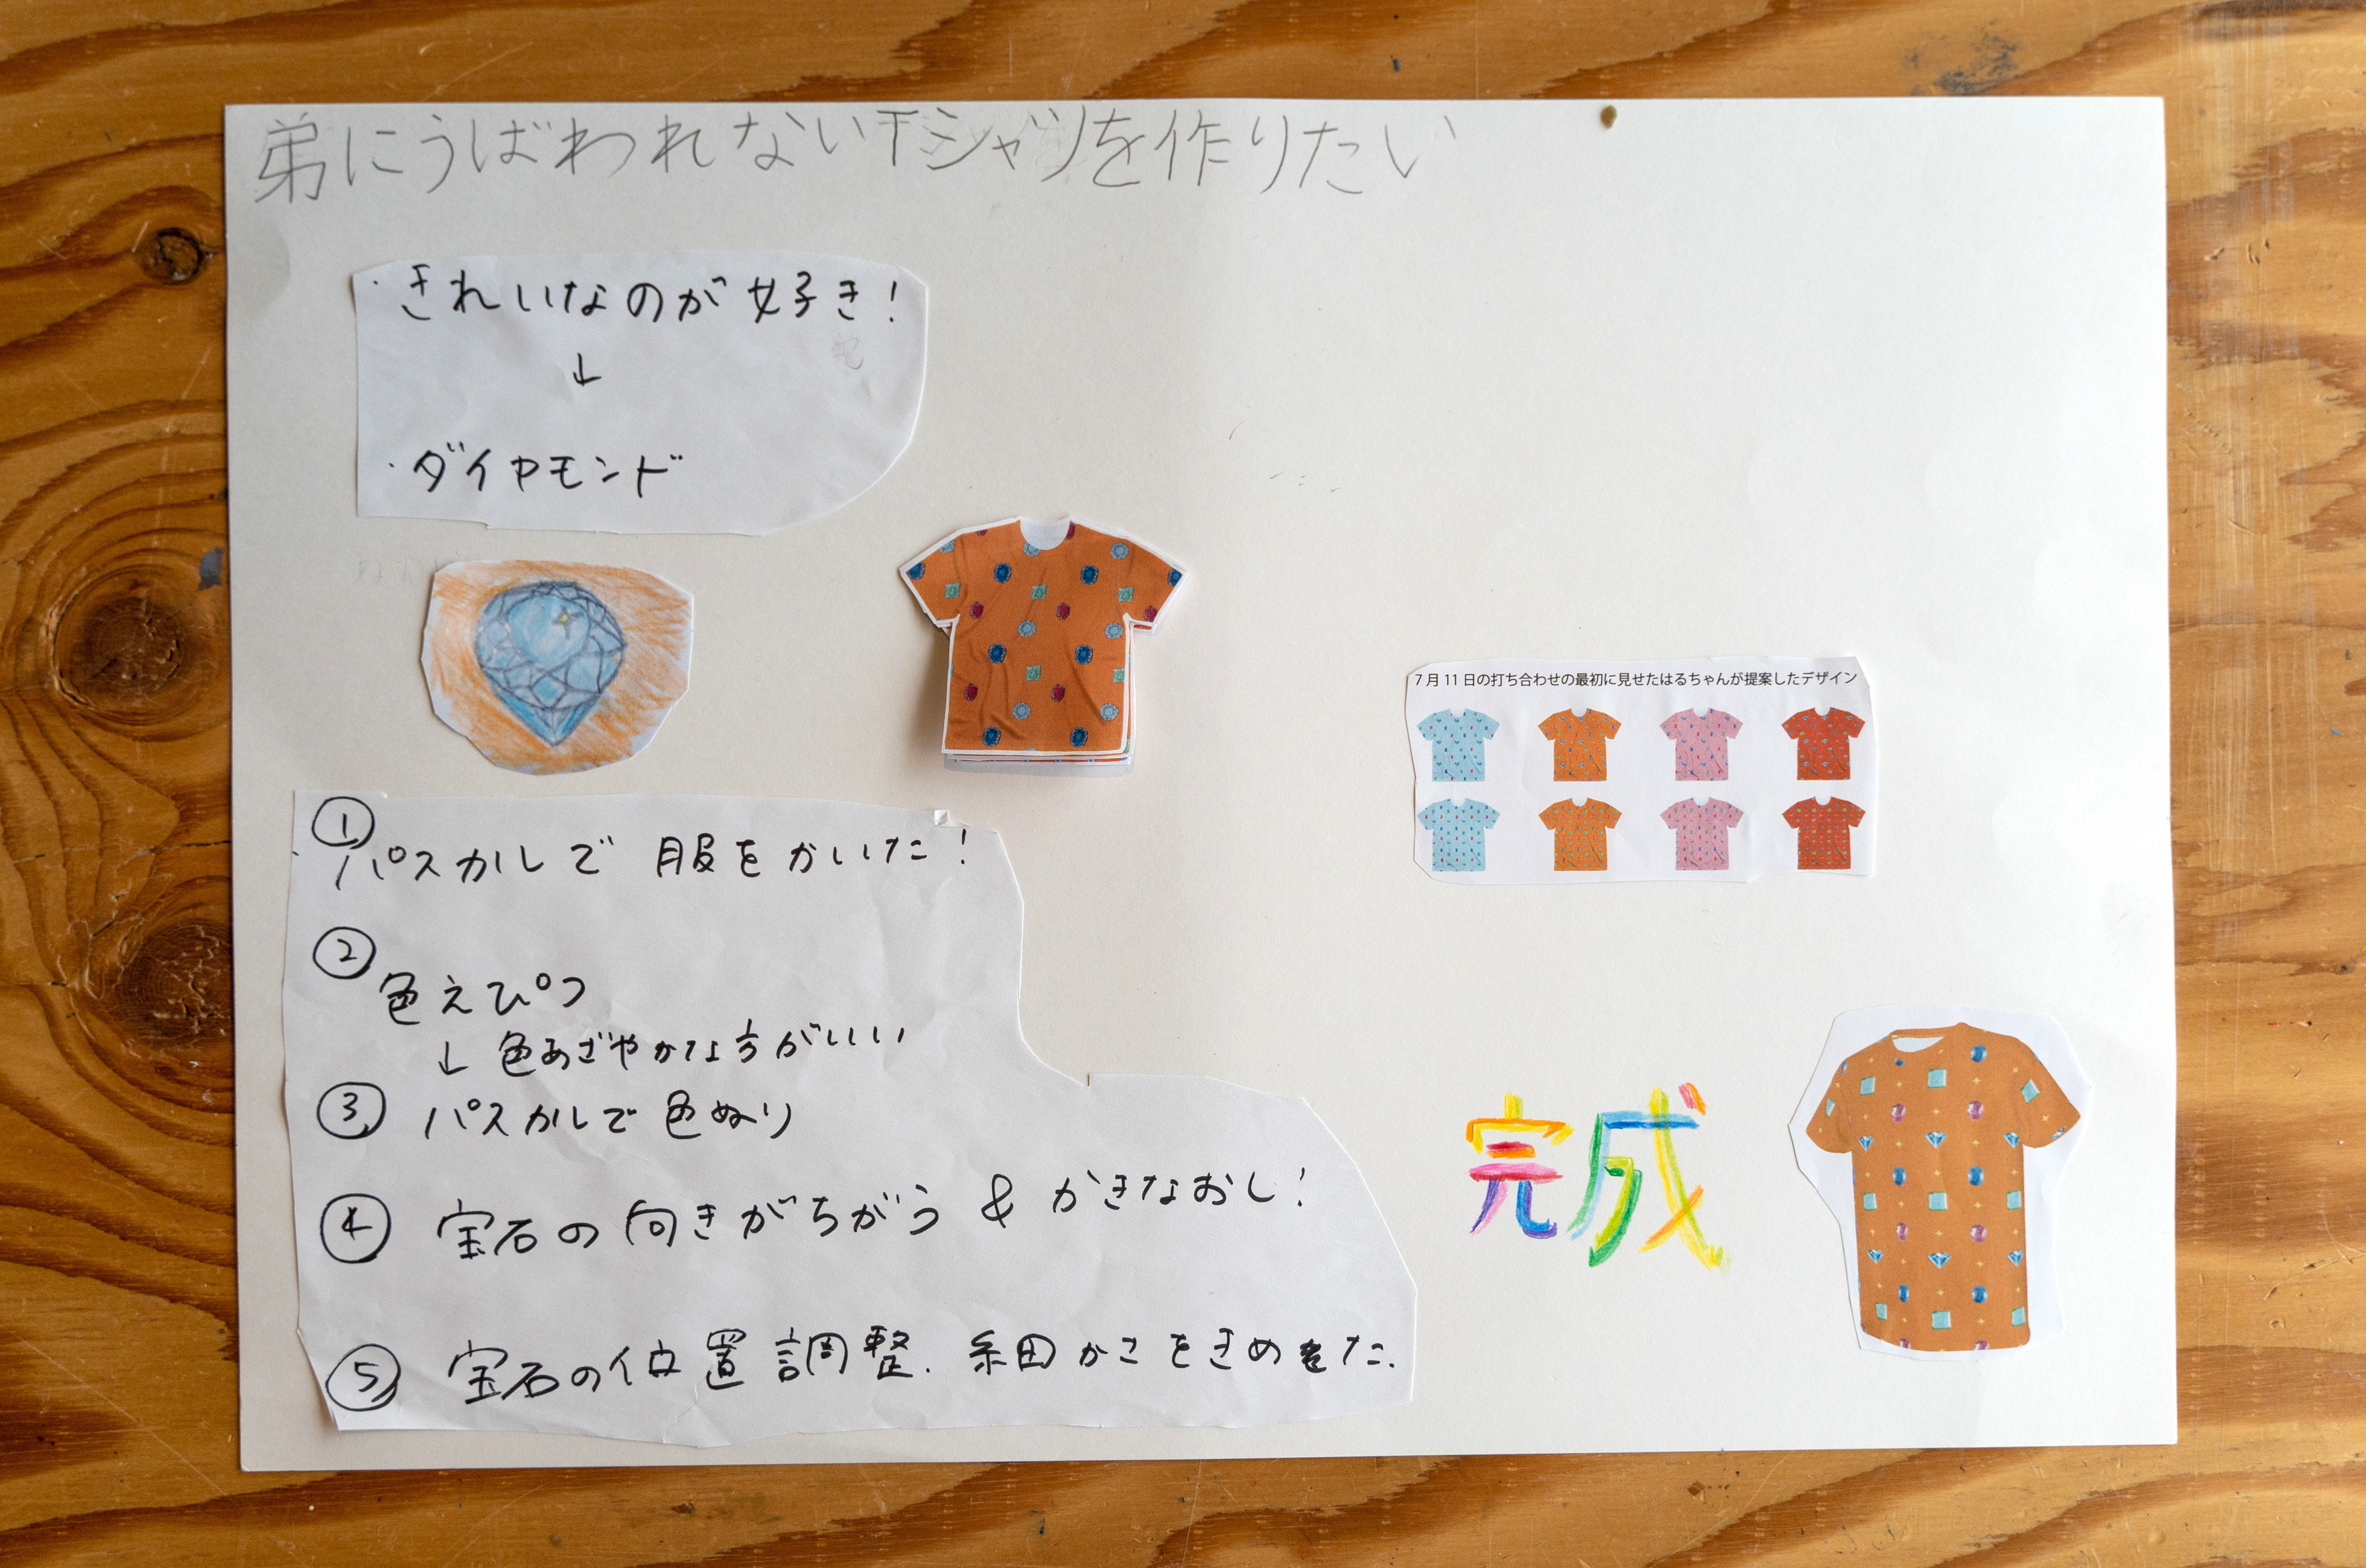 弟にうばわれないTシャツを作りたい
・きれいなのが好き!
↓
・ダイヤモンド
7月11日の打ち合わせの最初に見せたはるちゃんが提案したデザイン
①パスカルで 服をかいた!
②色えぴつ
↓ 色あざやかな方がいい
③パスカルで色ぬり
④宝石の向きがちがう & かきなおし!
⑤宝石の位置調整. 細かさをきめた.
完成